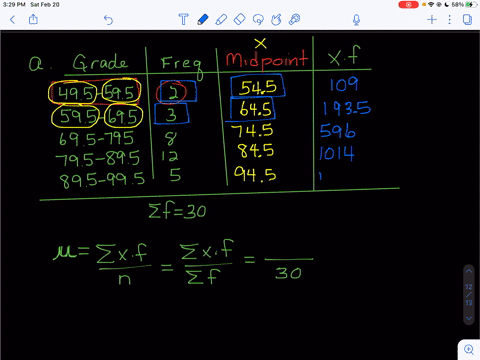 3:29 PM Sat Feb 20
58%
x
a. Grade Freq Midpoint x.f
49.5-59.5 2 54.5 109
59.5-69.5 3 64.5 193.5
69.5-79.5 8 74.5 596
79.5-89.5 12 84.5 1014
89.5-99.5 5 94.5
Σf=30
μ= Σx.f / n = Σx.f / Σf = __ / 30
12
12